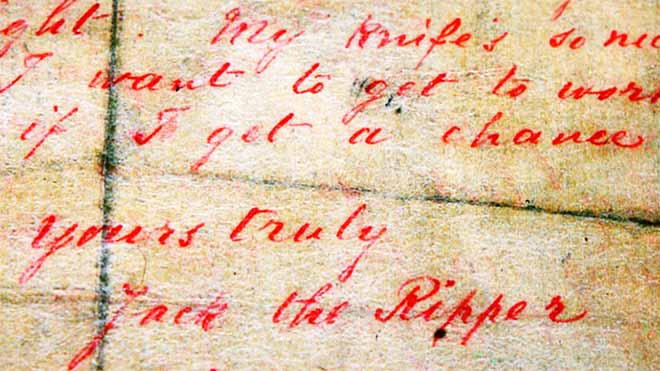 ght. My knife's so nic
I want to get to wor
if I get a chance
yours truly
Jack the Ripper